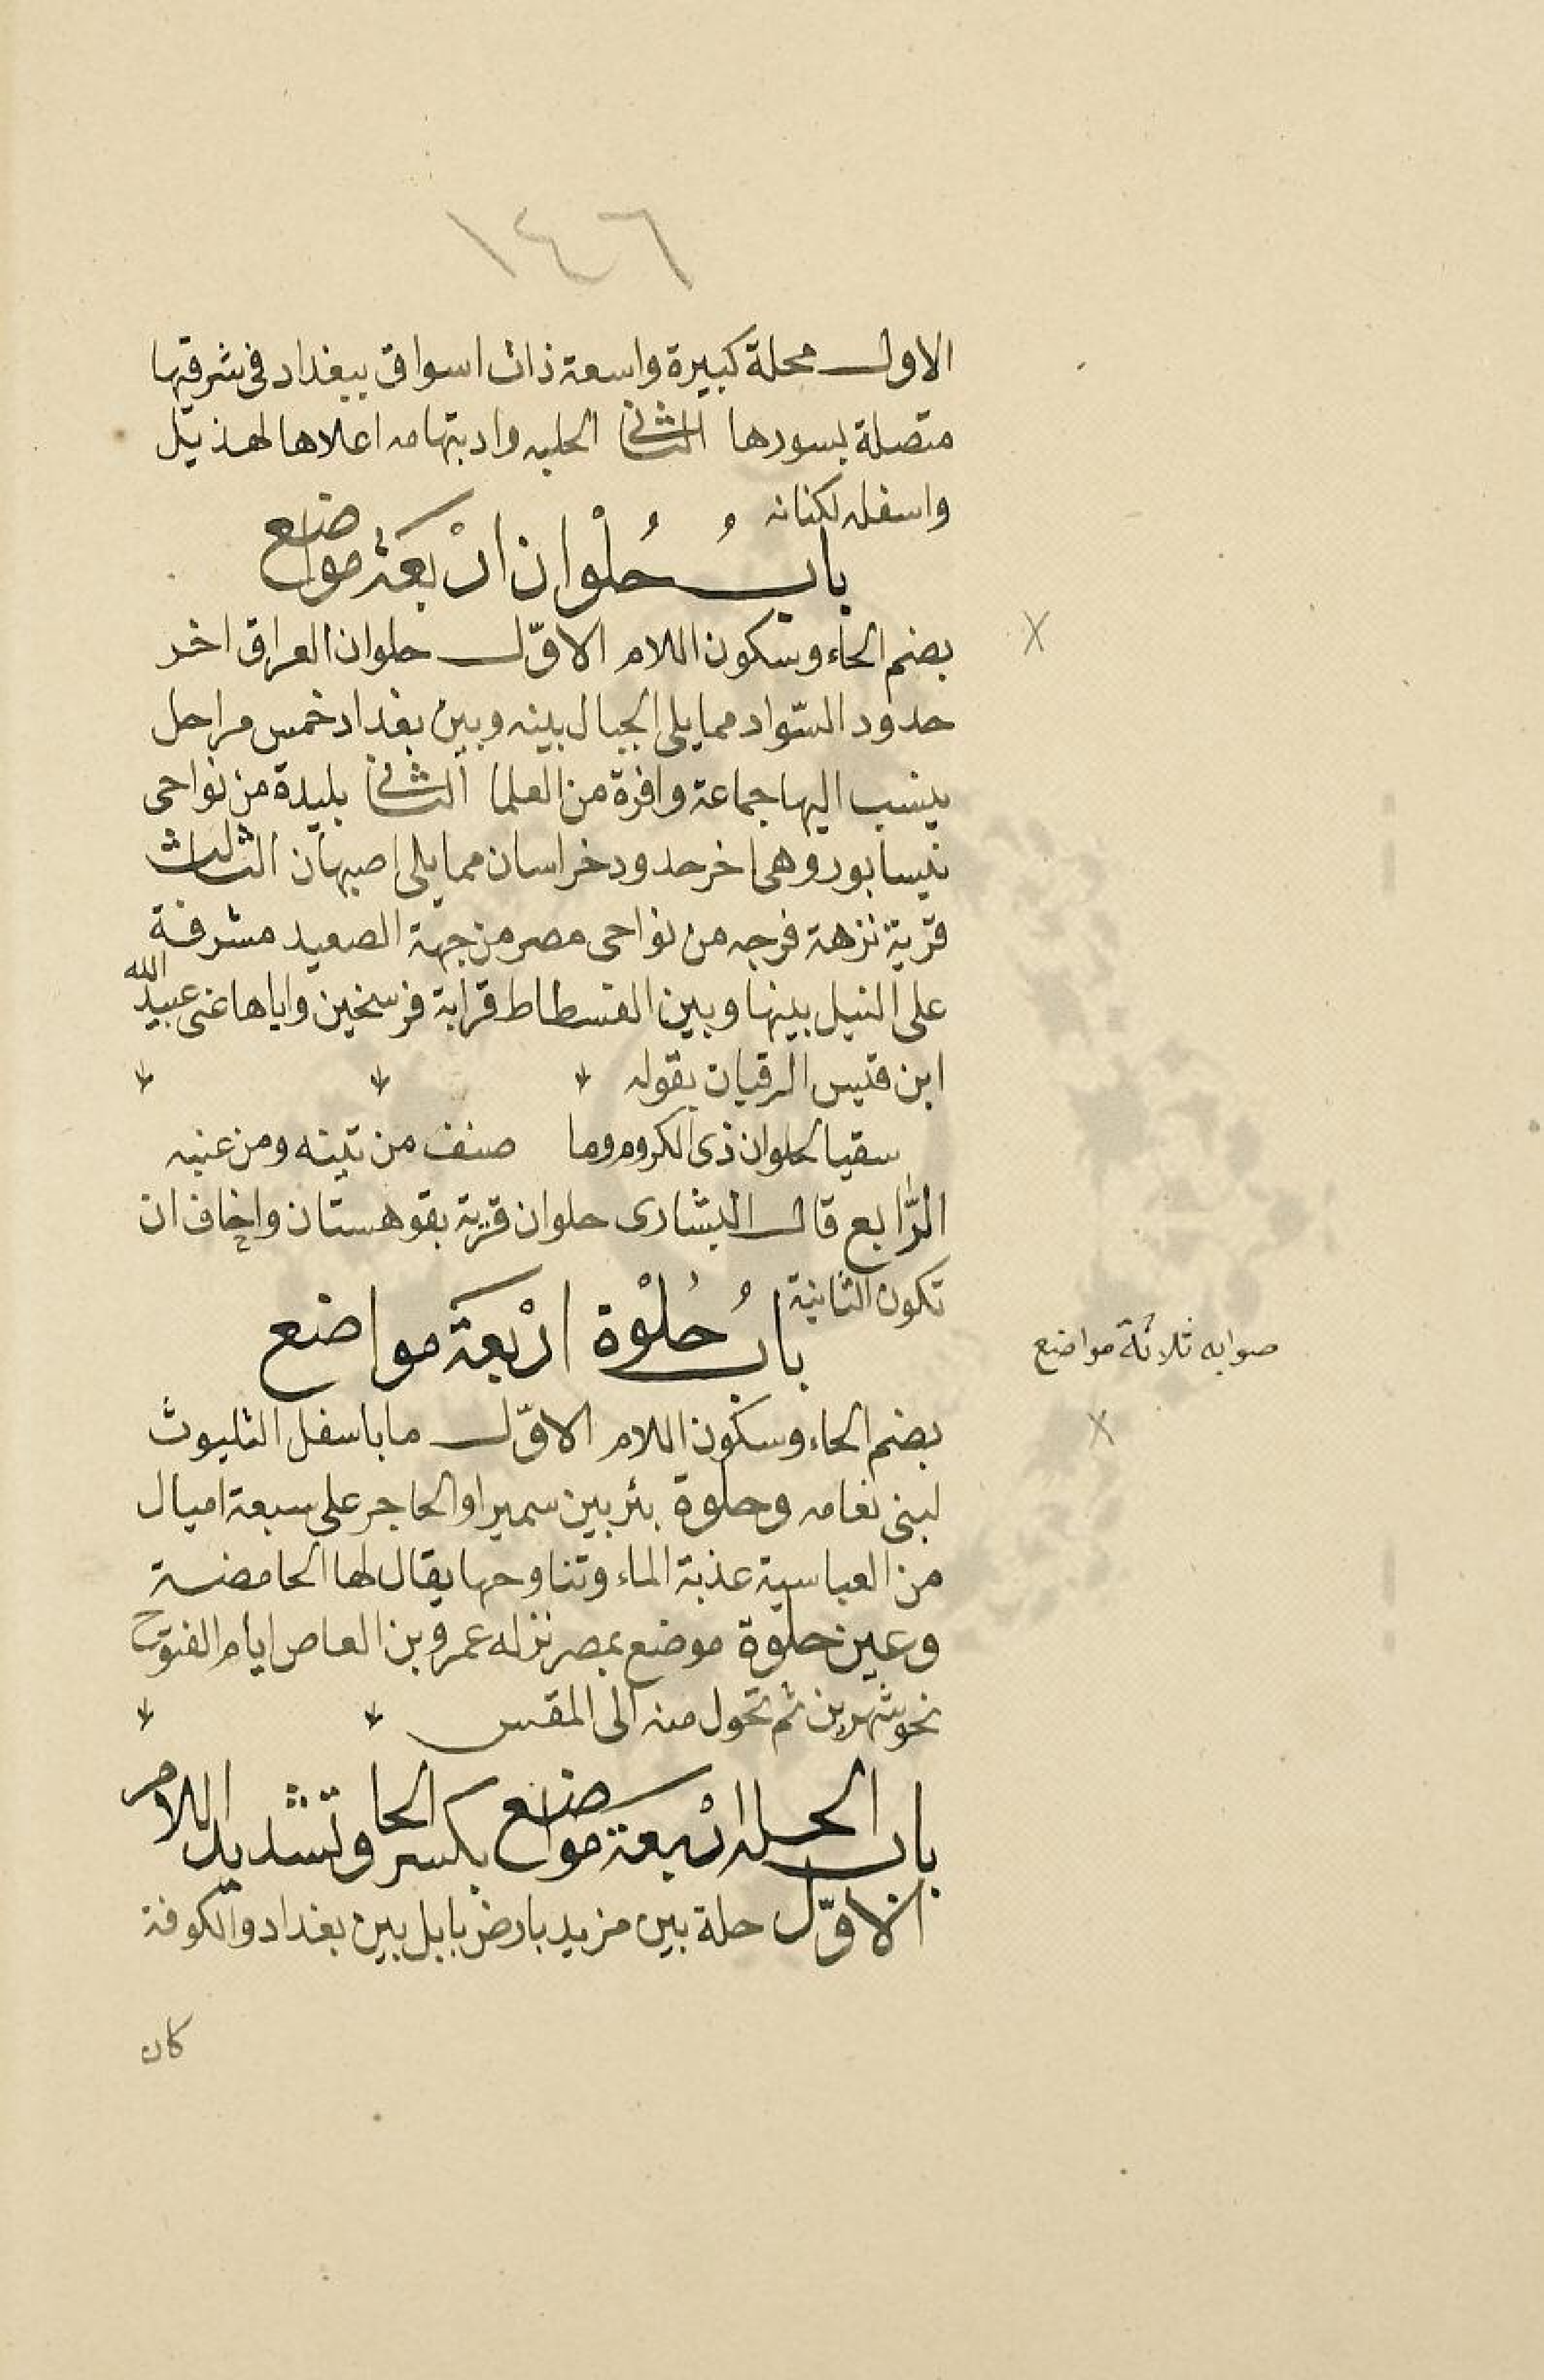 ١٤٦
الاول محلة كبيرة واسعة ذات اسواق ببغداد فى شرقيها
متصلة بسورها الثانى الحلبه واد بتهامه اعلاها لهذيل
واسفله لكنانه
بابُ حُلْوان ارْبعة مواضع
بضم الحاء وسكون اللام الاوّل حلوان العراق اخر
حدود السّواد مما يلى الجبال بينه وبين بغداد خمس مراحل
ينسب اليها جماعة وافرة من العلما الثانى بليدة من نواحى
نيسابور وهى اخر حدود خراسان مما يلى اصبهان الثالث
قرية نزهة فرجه من نواحى مصر من جهة الصعيد مشرفة
على النيل بينها وبين الفسطاط قرابة فرسخين واياها عنى عبيد الله
ابن قيس الرقيات بقوله
سقيا لحلوان ذى الكروم وما صنف من تينه ومن عنبه
الرّابع قال البشارى حلوان قرية بقوهستان واخاف ان
تكون الثانية
بابُ حُلْوة ارْبعة مواضع
صوابه ثلاثة مواضع
بضم الحاء وسكون اللام الاوّل ما باسفل الثلبوث
لبنى نعامه وحلوة بئر بين سميرا والحاجر على سبعة اميال
من العباسية عذبة الماء وتناوحها يقال لها الحامضة
وعين حلوة موضع بمصر نزله عمرو بن العاص ايام الفتوح
نحو شهرين ثم تحول منه الى المقس
باب الحله ارْبعة مواضع بكسر الحا وتشديد اللام
الاوّل حلة بين مزيد بارض بابل بين بغداد والكوفة
كان